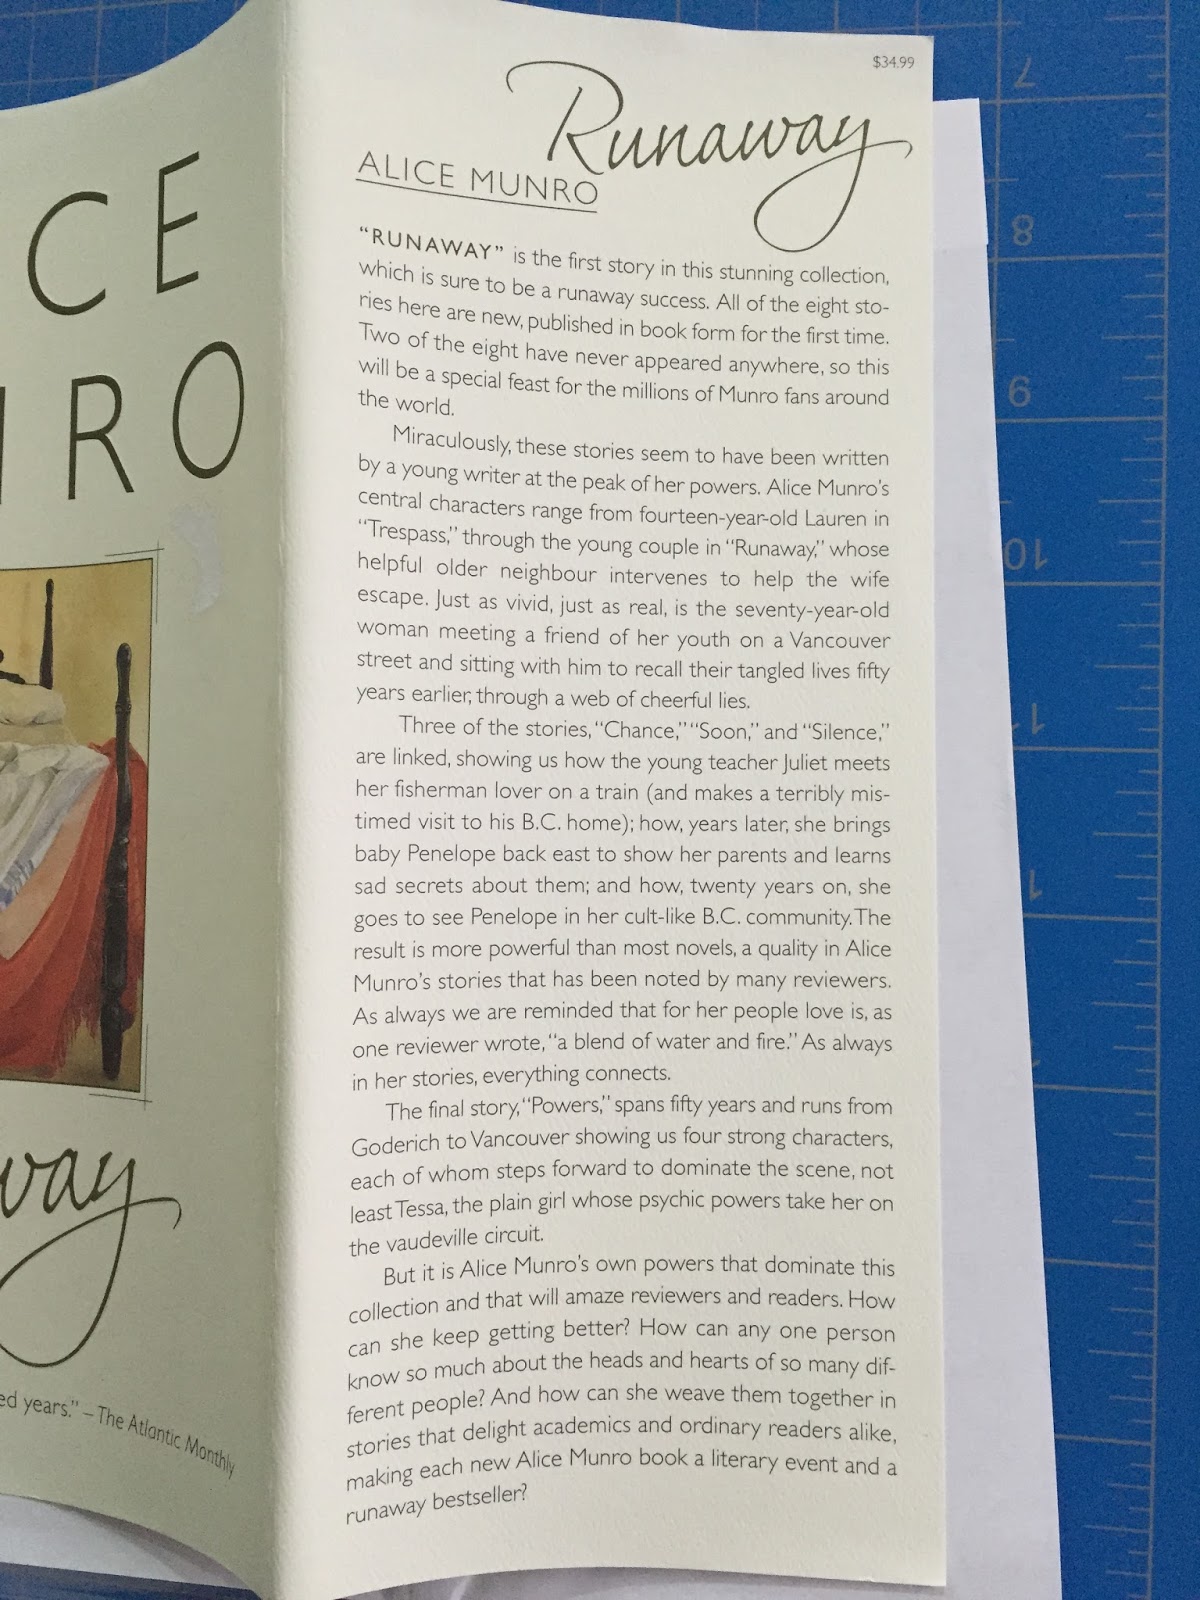 CE
RO
way
ed years." – The Atlantic Monthly
$34.99
Runaway
ALICE MUNRO
"RUNAWAY" is the first story in this stunning collection,
which is sure to be a runaway success. All of the eight sto-
ries here are new, published in book form for the first time.
Two of the eight have never appeared anywhere, so this
will be a special feast for the millions of Munro fans around
the world.
Miraculously, these stories seem to have been written
by a young writer at the peak of her powers. Alice Munro's
central characters range from fourteen-year-old Lauren in
"Trespass," through the young couple in "Runaway," whose
helpful older neighbour intervenes to help the wife
escape. Just as vivid, just as real, is the seventy-year-old
woman meeting a friend of her youth on a Vancouver
street and sitting with him to recall their tangled lives fifty
years earlier, through a web of cheerful lies.
Three of the stories, "Chance," "Soon," and "Silence,"
are linked, showing us how the young teacher Juliet meets
her fisherman lover on a train (and makes a terribly mis-
timed visit to his B.C. home); how, years later, she brings
baby Penelope back east to show her parents and learns
sad secrets about them; and how, twenty years on, she
goes to see Penelope in her cult-like B.C. community. The
result is more powerful than most novels, a quality in Alice
Munro's stories that has been noted by many reviewers.
As always we are reminded that for her people love is, as
one reviewer wrote, "a blend of water and fire." As always
in her stories, everything connects.
The final story, "Powers," spans fifty years and runs from
Goderich to Vancouver showing us four strong characters,
each of whom steps forward to dominate the scene, not
least Tessa, the plain girl whose psychic powers take her on
the vaudeville circuit.
But it is Alice Munro's own powers that dominate this
collection and that will amaze reviewers and readers. How
can she keep getting better? How can any one person
know so much about the heads and hearts of so many dif-
ferent people? And how can she weave them together in
stories that delight academics and ordinary readers alike,
making each new Alice Munro book a literary event and a
runaway bestseller?
7
8
9
10